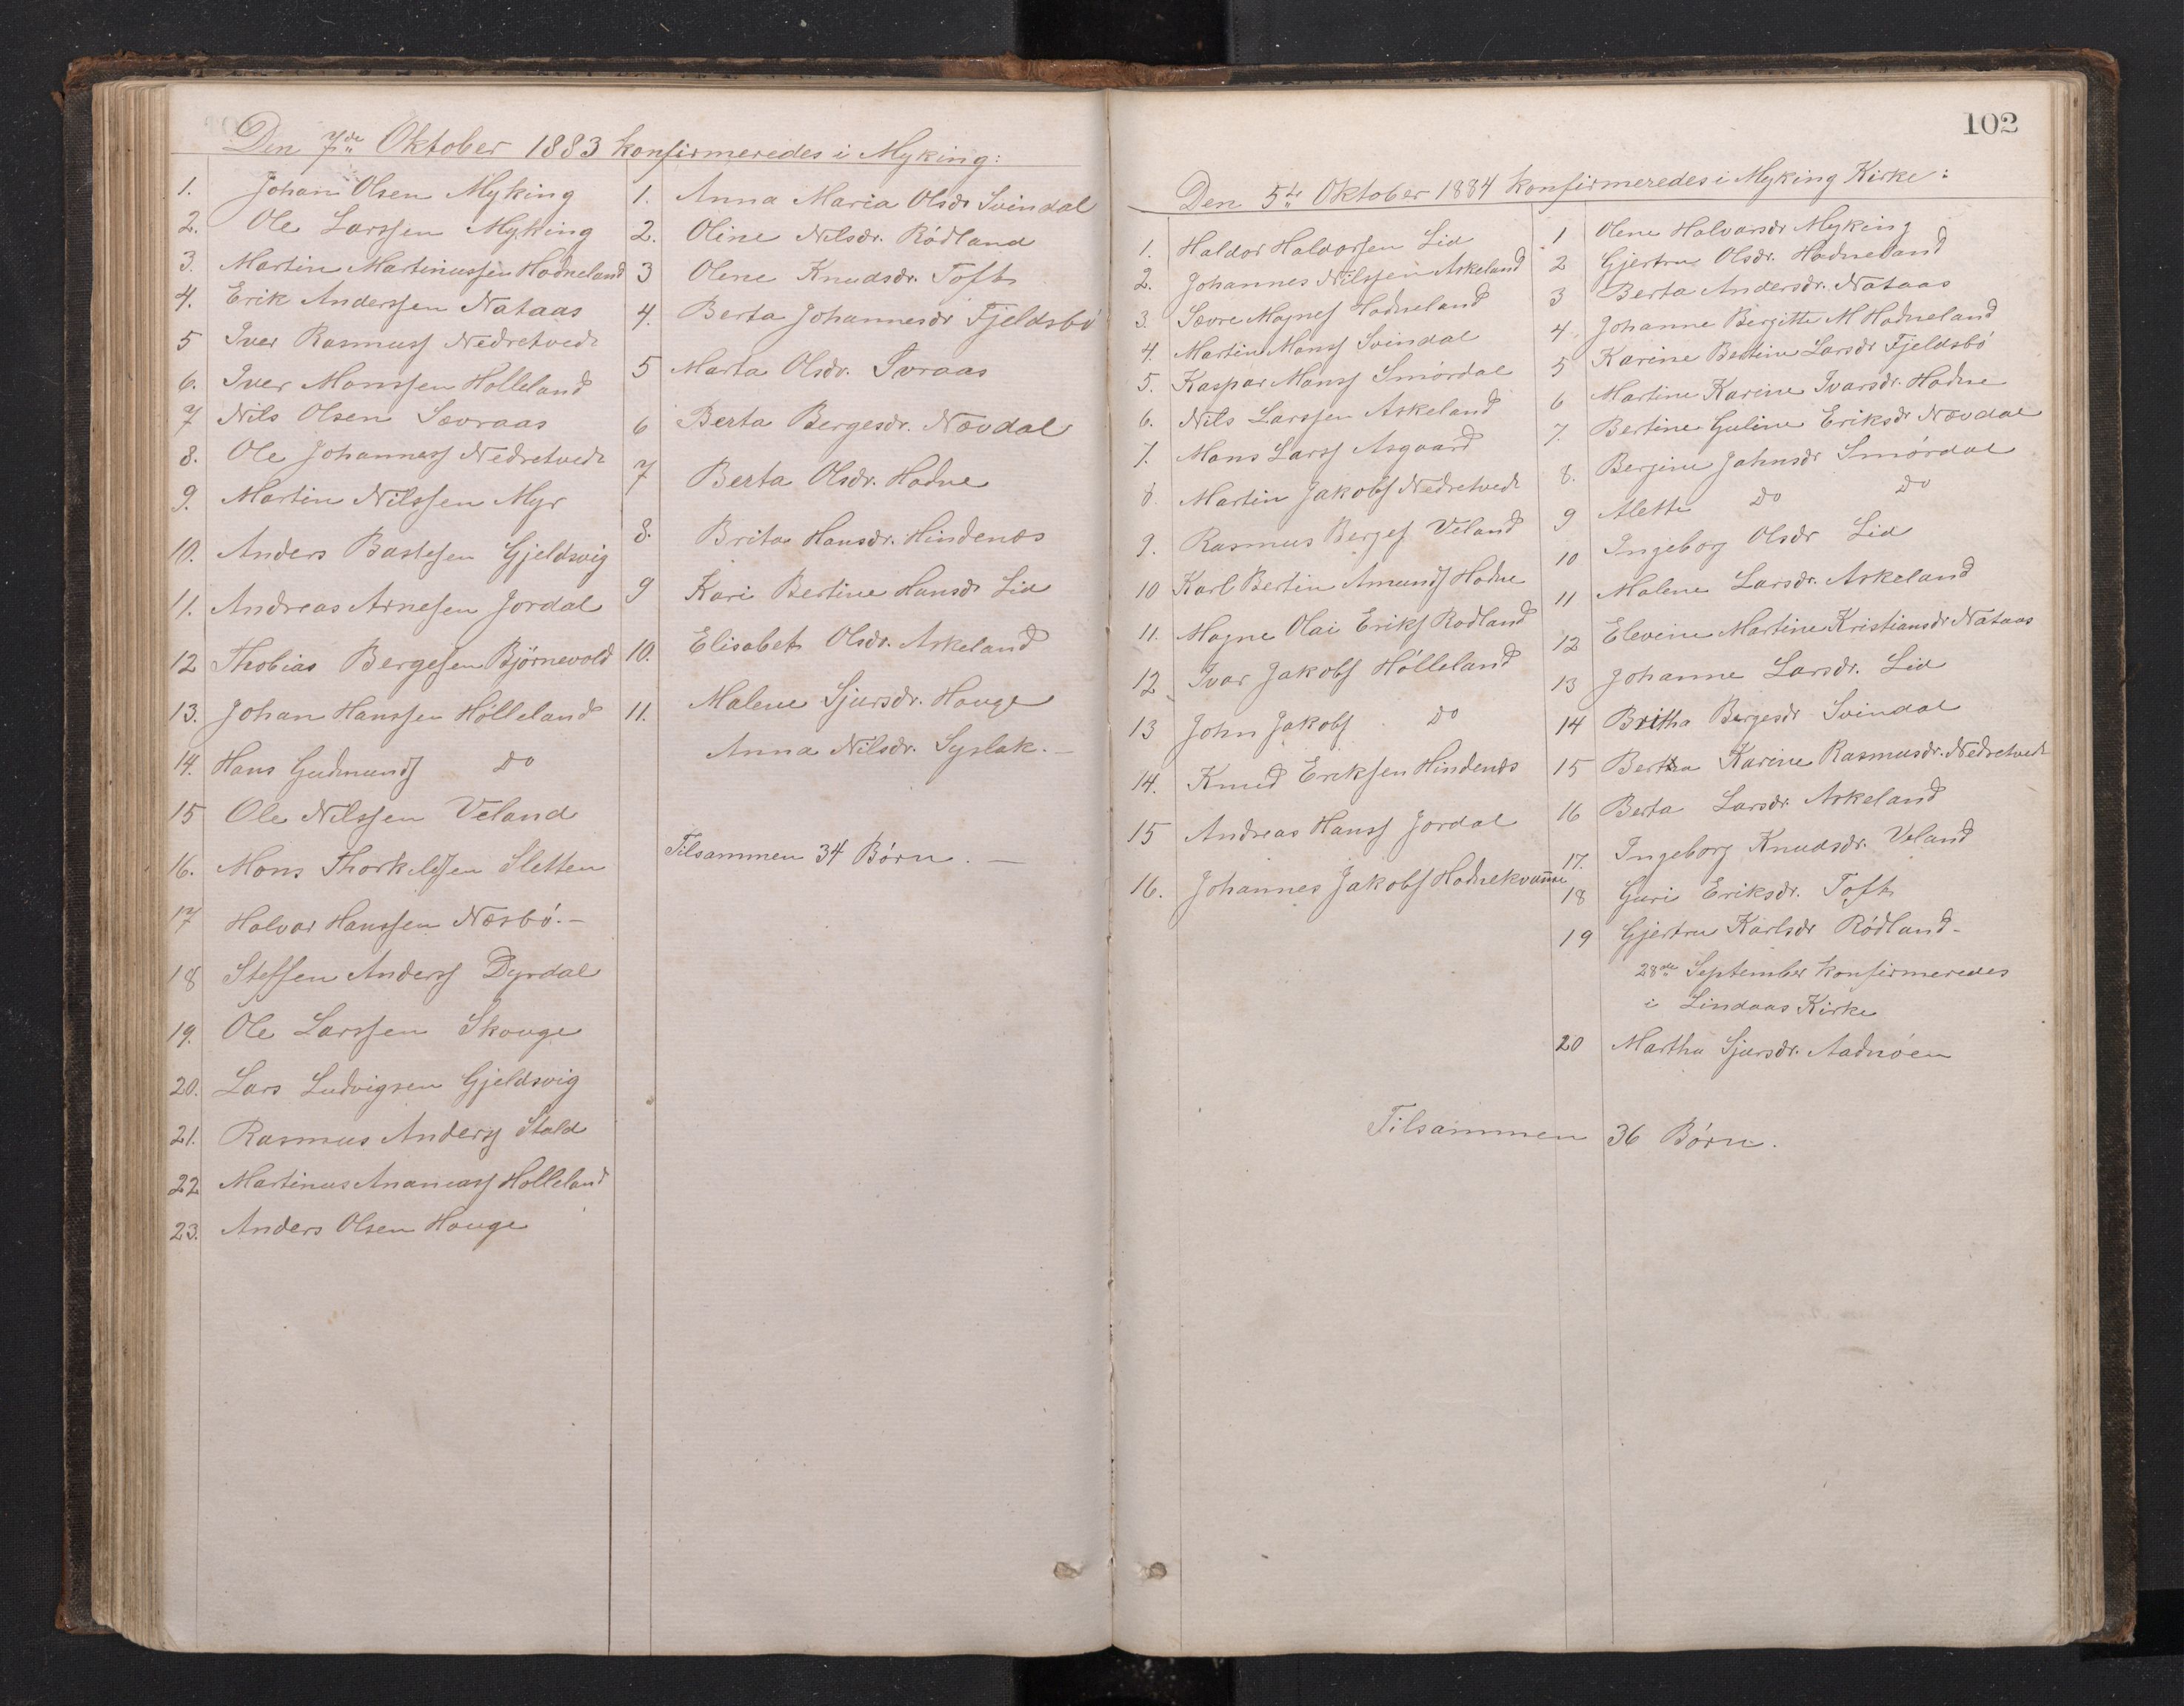 Den 7de Oktober 1883 konfirmeredes i Myking:
1. Johan Olsen Myking
2. Ole Larssen Myking
3. Martin Martinussen Hodneland
4. Erik Anderssen Nataas
5 Iver Rasmuss Nedretvedt
6. Iver Monssen Holleland
7 Nils Olsen Sævraas
8. Ole Johanness Nedretvedt
9. Martin Nilssen Myr
10. Anders Bastesen Gjeldsvig
11. Andreas Arnesen Jordal
12 Thobias Bergesen Björnevold
13. Johan Hanssen Hölleland
14. Hans Gudmunds Do
15 Ole Nilssen Veland
16. Mons Thorkelssen Sletten
17 Halvor Hanssen Næsbö.-
18 Steffen Anderss Dyrdal
19. Ole Larssen Skouge
20. Lars Ludvigsen Gjeldsvig
21. Rasmus Anderss Stald
22 Martinus Ananiass Holleland
23. Anders Olsen Houge
1. Anna Maria Olsdr Svindal
2. Oline Nilsdr. Rödland
3 Olene Knudsdr. Toft
4. Berta Johannesdr Fjeldsbö
5 Marta Olsdr. Sævraas
6 Berta Bergesdr. Nævdal
7 Berta Olsdr. Hodne
8. Brita Hansdr. Hindenes
9 Kari Bertine Hansdr Lid
10. Elisabet Olsdr. Askeland
11. Malene Sjursdr. Houge
Anna Nilsdr. Syslak.-
Tilsammen 34 Börn.-
102
Den 5te Oktober 1884 konfirmeredes i Myking Kirke:
1. Haldor Haldorsen Lid
2. Johannes Nilssen Askeland
3. Sævre Magnes Hodneland
4. Martin Monss Svindal
5. Kaspar Monss Smördal
6. Nils Larssen Askeland
7. Mons Larss Asgaard
8. Martin Jakobs Nedretvedt
9. Rasmus Berges Veland
10 Karl Bertin Amunds Hodne
11. Magne Olai Eriks Rodland
12 Ivar Jakobs Hölleland
13 John Jakobs Do
14. Knud Eriksen Hindenes
15 Andreas Hanss Jordal
16. Johannes Jakobs Hodnekvamme
1 Olene Halvorsdr Myking
2 Gjertrud Olsdr. Hodneland
3 Berta Andersdr. Nataas
4 Johanne Bergitte M Hodneland
5 Karine Bertine Larsdr Fjeldsbö
6 Martine Karine Ivarsdr. Hodne
7. Bertine Guline Eriksdr Nævdal
8. Bergine Johnsdr Smördal
9 Alette Do Do
10 Ingeborg Olsdr Lid
11 Malene Larsdr. Askeland
12 Elevine Martine Kristiansdr Nataas
13 Johanne Larsdr. Lid
14 Britha Bergesdr Svindal
15 Bertha Karine Rasmusdr. Nedretvedt
16 Berta Larsdr. Askeland
17. Ingeborg Knudsdr. Veland
18 Guri Eriksdr. Toft
19 Gjertru Karlsdr Rödland-
28de September konfirmeredes
i Lindaas Kirke
20 Martha Sjursdr. Aadnöen
Tilsammen 36 Börn.